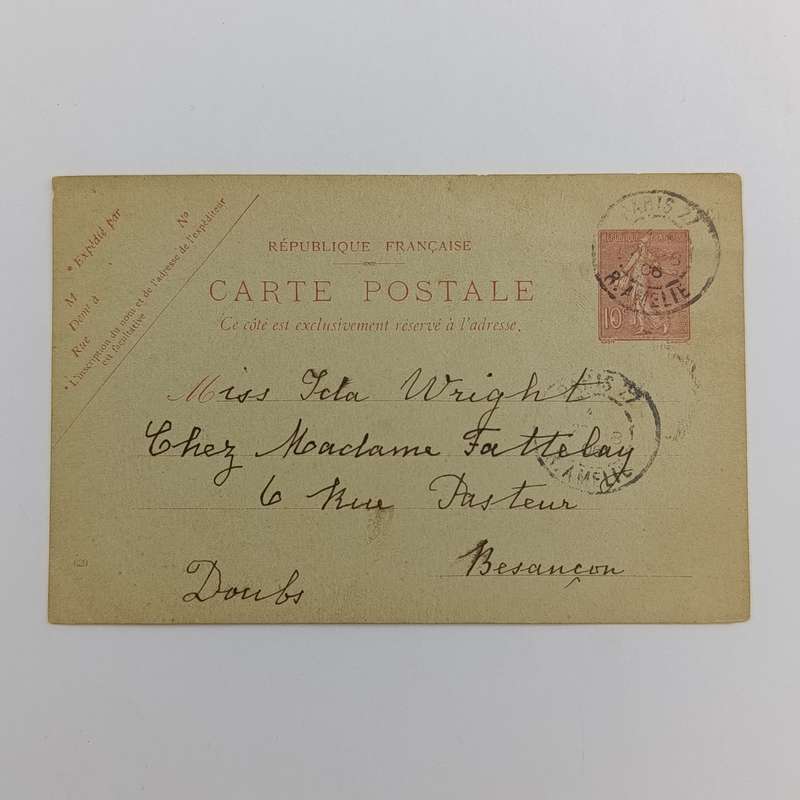 * Expédié par
M
Demt à
Rue
No
* L'inscription du nom et de l'adresse de l'expéditeur
est facultative
RÉPUBLIQUE FRANÇAISE
CARTE POSTALE
Ce côté est exclusivement réservé à l'adresse.
PARIS 77
06
R. AMELIE
RÉPUBLIQUE FRANÇAISE
10c
Miss Ida Wright
Chez Madame Fattelay
6 Rue Pasteur
Besançon
Doubs
PARIS 77
R. AMELIE